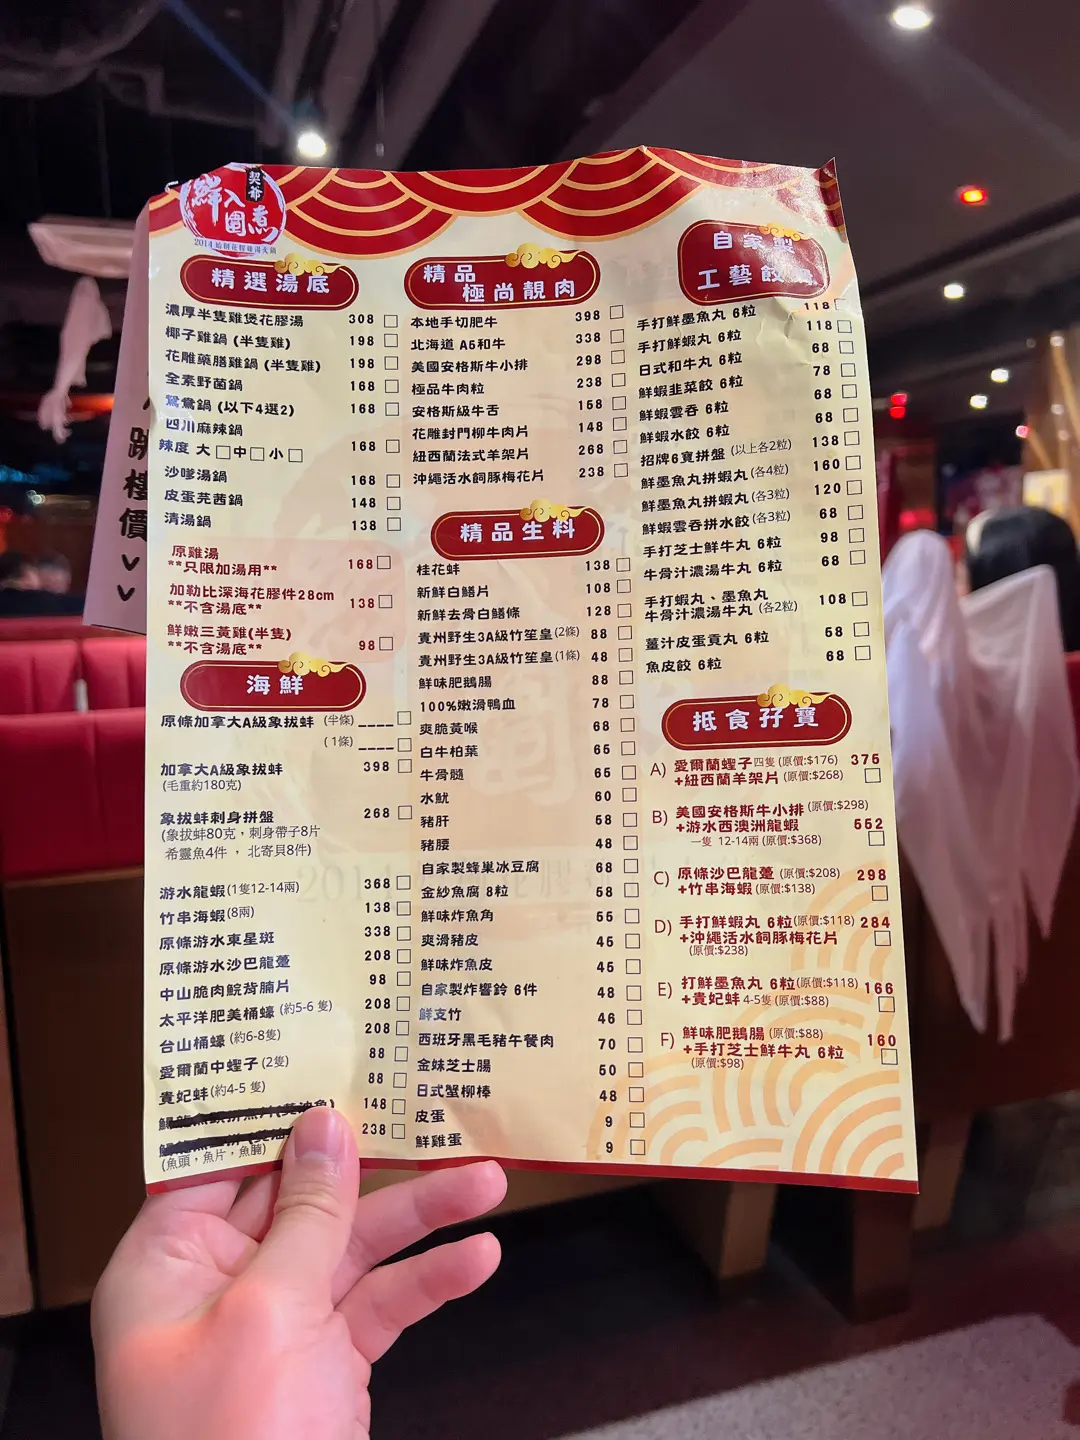 契爺
鮮入圍煮
2014 始創花膠雞湯火鍋
精選湯底
濃厚半隻雞煲花膠湯 308
椰子雞鍋 (半隻雞) 198
花雕藥膳雞鍋 (半隻雞) 198
全素野菌鍋 168
鴛鴦鍋 (以下4選2) 168
四川麻辣鍋
辣度 大 中 小 168
沙嗲湯鍋 168
皮蛋芫茜鍋 148
清湯鍋 138
原雞湯 168
**只限加湯用**
加勒比深海花膠件28cm 138
**不含湯底**
鮮嫩三黃雞(半隻) 98
**不含湯底**
海鮮
原條加拿大A級象拔蚌 (半條) ____
(1條) ____
加拿大A級象拔蚌 398
(毛重約180克)
象拔蚌刺身拼盤 268
(象拔蚌80克，刺身帶子8片
希靈魚4件 ， 北寄貝8件)
游水龍蝦(1隻12-14兩) 368
竹串海蝦(8兩) 138
原條游水東星斑 338
原條游水沙巴龍躉 208
中山脆肉鯇背腩片 98
太平洋肥美桶蠔 (約5-6 隻) 208
台山桶蠔 (約6-8隻) 208
愛爾蘭中蟶子 (2隻) 88
貴妃蚌 (約4-5 隻) 88
148
238
(魚頭，魚片，魚腩)
精品
極尚靚肉
本地手切肥牛 398
北海道 A5和牛 338
美國安格斯牛小排 298
極品牛肉粒 238
安格斯級牛舌 158
花雕封門柳牛肉片 148
紐西蘭法式羊架片 268
沖繩活水飼豚梅花片 238
精品生料
桂花蚌 138
新鮮白鱔片 108
新鮮去骨白鱔條 128
貴州野生3A級竹笙皇(2條) 88
貴州野生3A級竹笙皇(1條) 48
鮮味肥鵝腸 88
100%嫩滑鴨血 78
爽脆黃喉 68
白牛柏葉 65
牛骨髓 65
水魷 60
豬肝 58
豬腰 48
自家製蜂巢冰豆腐 68
金紗魚腐 8粒 58
鮮味炸魚角 55
爽滑豬皮 45
鮮味炸魚皮 45
自家製炸響鈴 6件 48
鮮支竹 46
西班牙黑毛豬午餐肉 70
金妹芝士腸 50
日式蟹柳棒 48
皮蛋 9
鮮雞蛋 9
自家製
工藝餃
手打鮮墨魚丸 6粒 118
手打鮮蝦丸 6粒 118
日式和牛丸 6粒 68
鮮蝦韭菜餃 6粒 78
鮮蝦雲吞 6粒 68
鮮蝦水餃 6粒 68
招牌6寶拼盤 (以上各2粒) 138
鮮墨魚丸拼蝦丸(各4粒) 160
鮮墨魚丸拼蝦丸(各3粒) 120
鮮蝦雲吞拼水餃(各3粒) 68
手打芝士鮮牛丸 6粒 98
牛骨汁濃湯牛丸 6粒 68
手打蝦丸、墨魚丸
牛骨汁濃湯牛丸 (各2粒) 108
薑汁皮蛋貢丸 6粒 58
魚皮餃 6粒 68
抵食孖寶
A) 愛爾蘭蟶子四隻(原價:$176) 375
+紐西蘭羊架片(原價:$268)
B) 美國安格斯牛小排(原價:$298)
+游水西澳洲龍蝦 552
一隻 12-14兩(原價:$368)
C) 原條沙巴龍躉 (原價:$208) 298
+竹串海蝦(原價:$138)
D) 手打鮮蝦丸 6粒(原價:$118) 284
+沖繩活水飼豚梅花片
(原價:$238)
E) 打鮮墨魚丸 6粒(原價:$118) 166
+貴妃蚌 4-5隻 (原價:$88)
F) 鮮味肥鵝腸 (原價:$88) 160
+手打芝士鮮牛丸 6粒
(原價:$98)
跳樓價